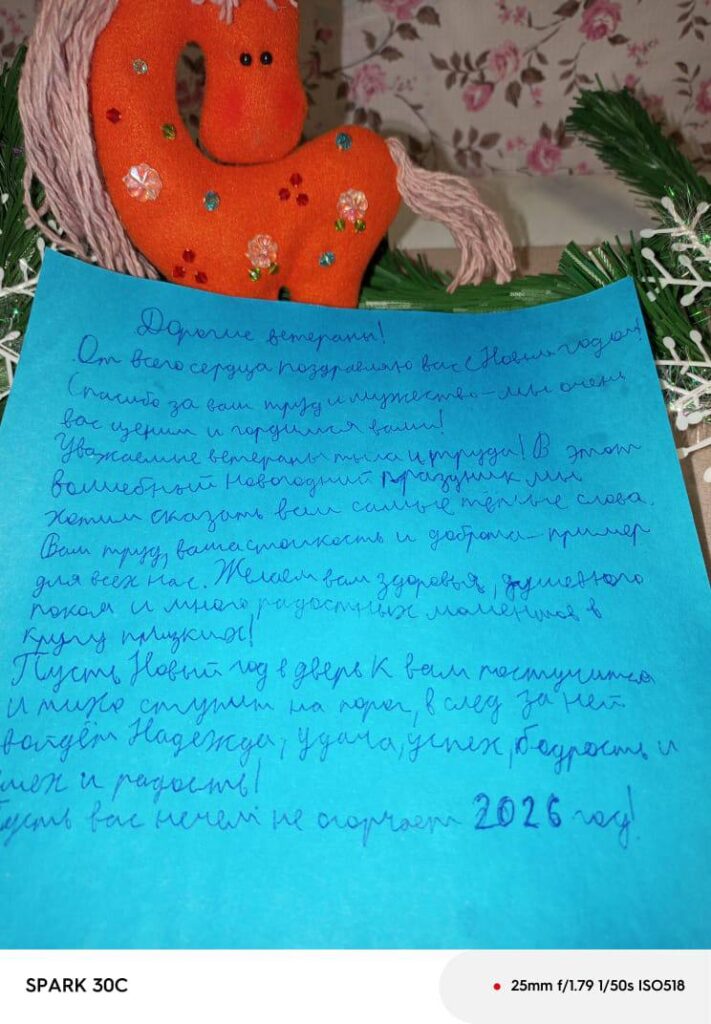 Дорогие ветераны!
От всего сердца поздравляю вас с Новым годом!
Спасибо за ваш труд и мужество – мы очень
вас ценим и гордимся вами!
Уважаемые ветераны тыла и труда! В этот
волшебный новогодний праздник мы
хотим сказать вам самые тёплые слова.
Ваш труд, ваша стойкость и доброта – пример
для всех нас. Желаем вам здоровья, душевного
покоя и много радостных моментов в
кругу близких!
Пусть Новый год в дверь к вам постучится
и тихо ступит на порог, в след за ней
войдёт Надежда, удача, успех, бодрость и
смех и радость!
Пусть вас нечем не огорчает 2026 год!
SPARK 30C
25mm f/1.79 1/50s ISO518